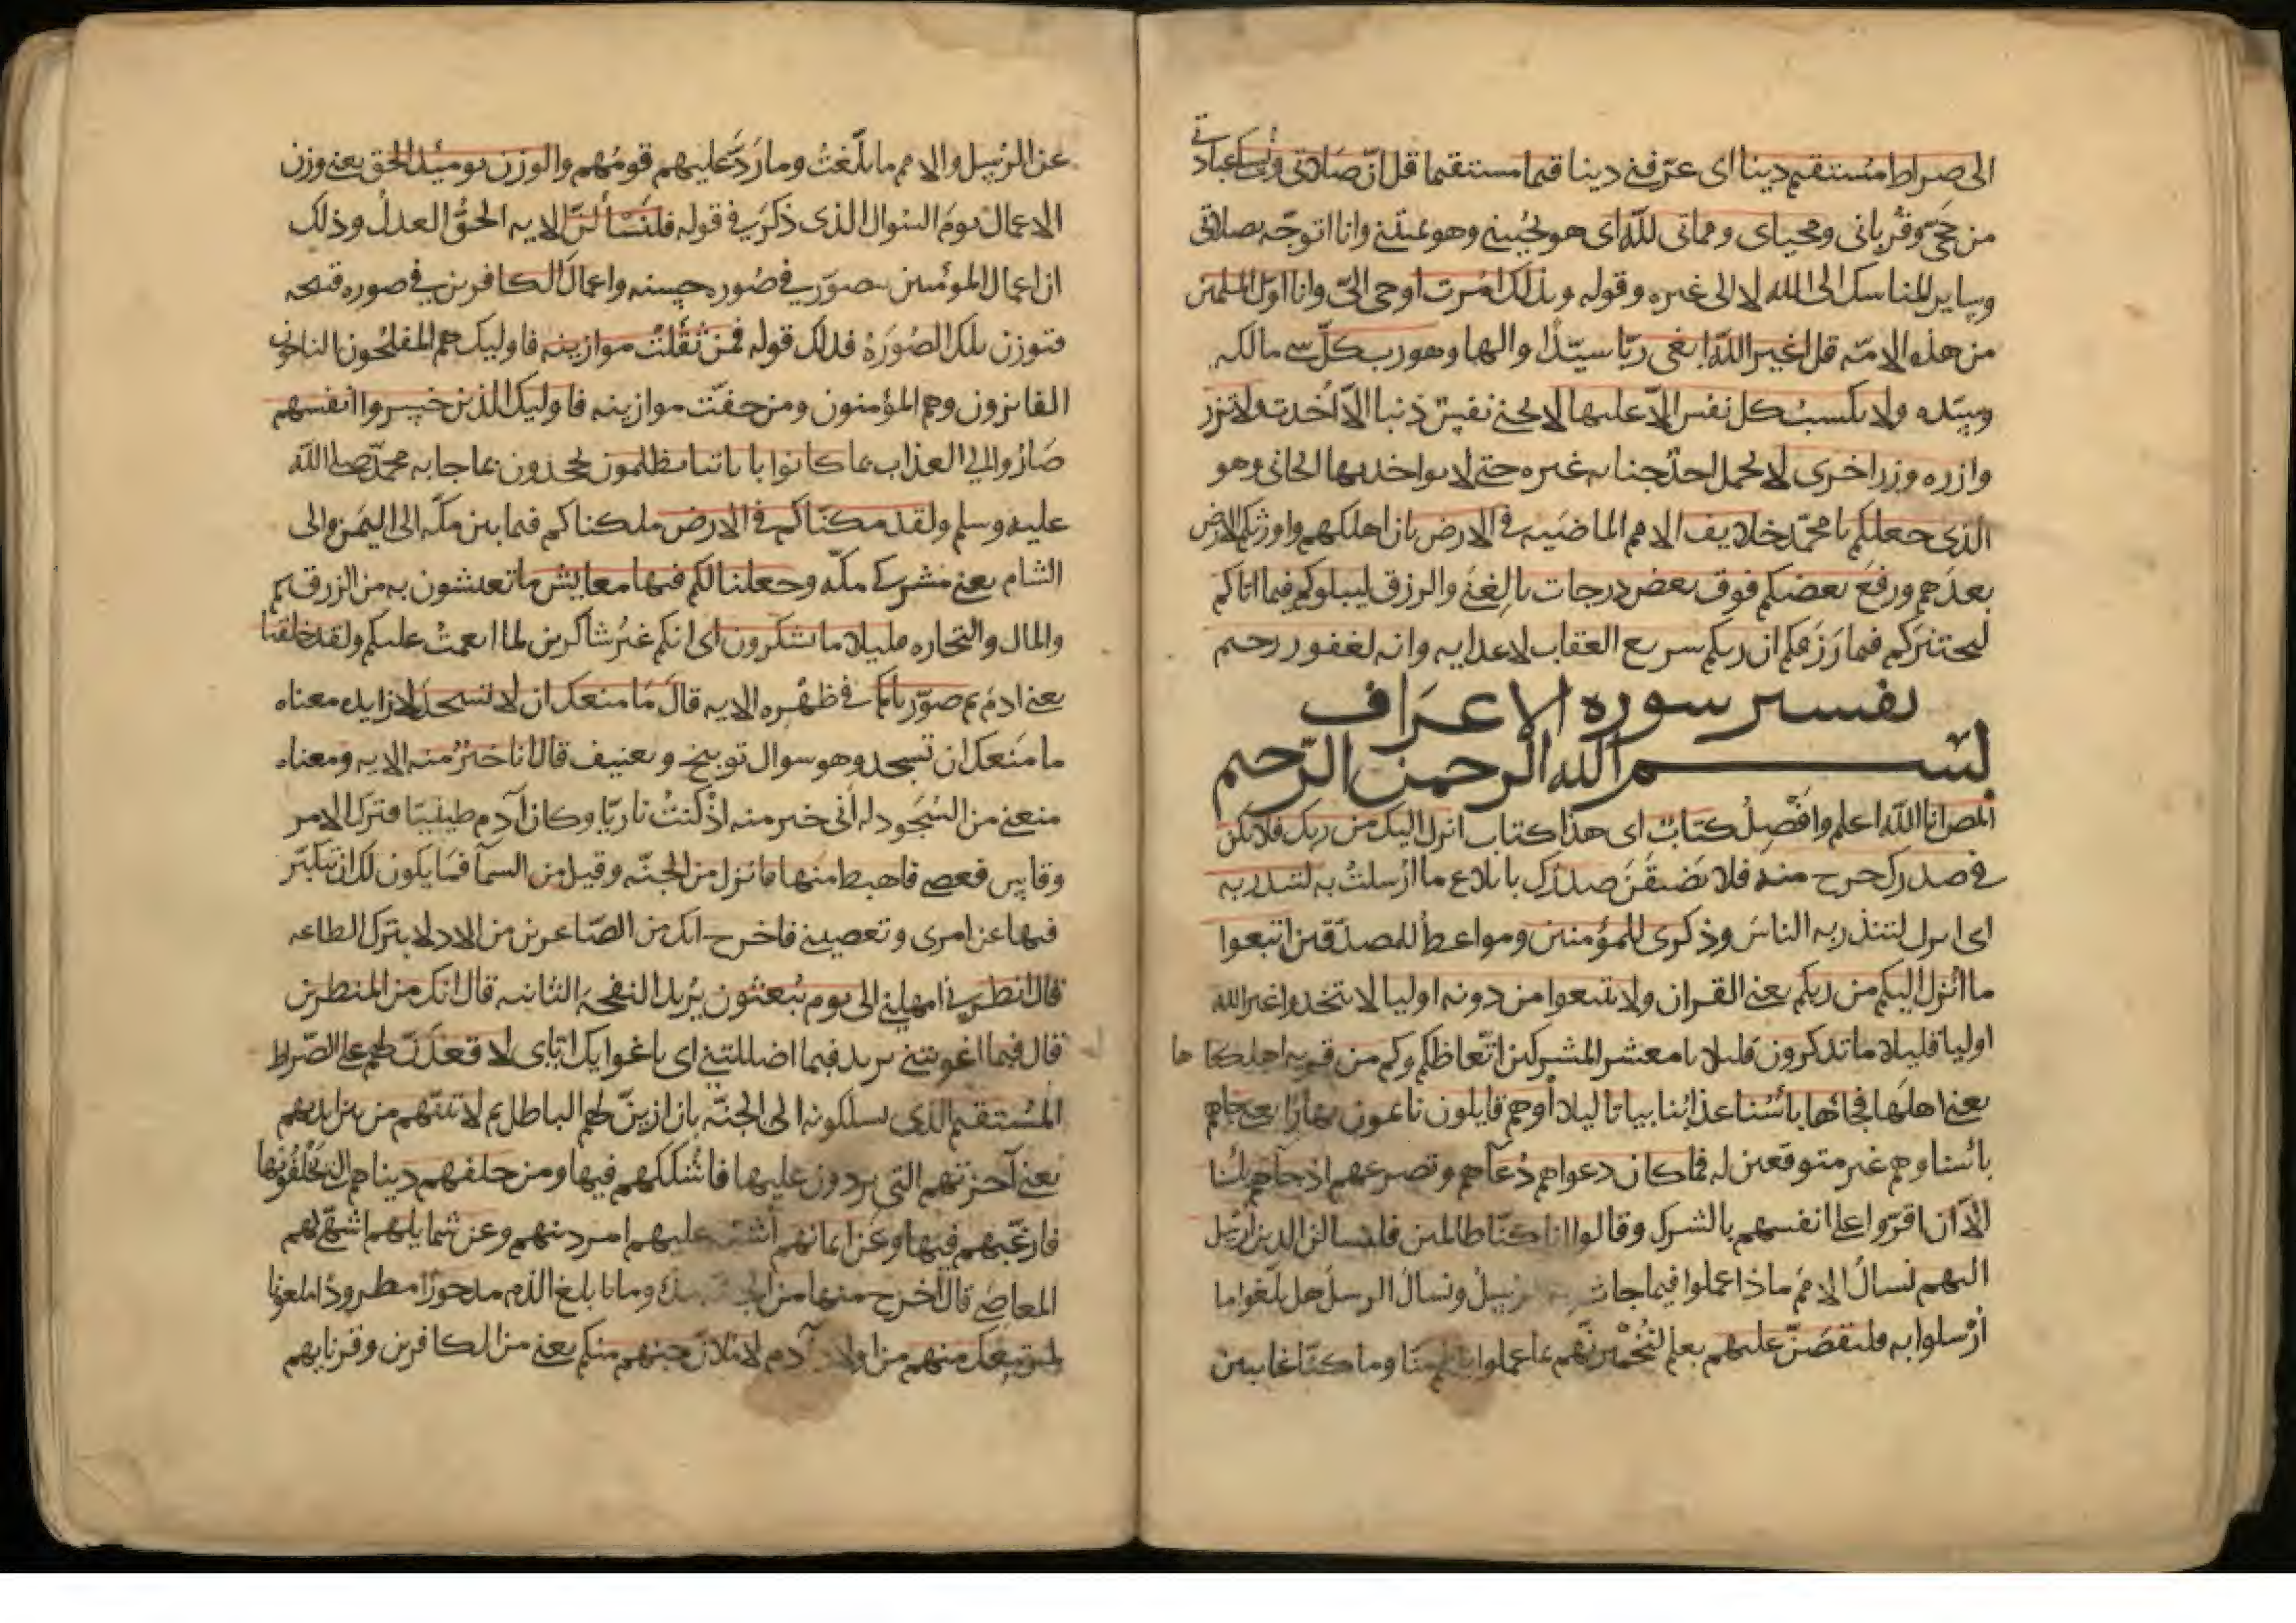 الى صراط مستقيم دينا اى عرّفنى دينا قيما مستقيما قل انّ صلاتى ونسكى عبادتى
من حجّى وقربانى ومحياى ومماتى لله اى هو يحيينى وهو يميتنى وانا اتوجّه بصلاتى
وساير المناسك الى الله لا الى غيره وقوله وبذلك امرت اوحى الىّ وانا اوّل المسلمين
من هذه الامّه قل اغير الله ابغى ربّا سيّدا والها وهو رب كلّ شى مالكه
وسيّده ولا تكسب كل نفس الاّ عليها لا تجنى نفس ذنبا الاّ اُخذت به ولا تزر
وازره وزر اخرى لا يحمل احد جنايه غيره حتى لا يواخذ بها الجانى وهو
الذى جعلكم يا محمّد خلايف الامم الماضيه فى الارض بان اهلكهم واورثكم الارض
بعدهم ورفع بعضكم فوق بعض درجات بالغنى والرزق ليبلوكم فيما اتاكم
ليختبركم فيما رزقكم ان ربكم سريع العقاب لاعدايه وانه لغفور رحيم
تفسير سوره الاعراف
بسم الله الرحمن الرّحيم
المص انا الله اعلم وافصل كتاب اى هذا كتاب انزل اليك من ربك فلا يكن
فى صدرك حرج منه فلا تضيقنّ صدرك بابلاغ ما ارسلت به لتنذر به
اى انزل لتنذر به الناس وذكرى للمؤمنين ومواعظ للمصدّقين اتبعوا
ما انزل اليكم من ربكم يعنى القران ولا تتبعوا من دونه اوليا لا تتخذوا غير الله
اوليا قليلا ما تذكرون قليلا يا معشر المشركين اتّعاظكم وكم من قريه اهلكناها
يعنى اهلها فجاها بأسُنا عذابُنا بياتا ليلا أو هم قايلون نايمون نهارًا يعنى جاهم
بائسنا وهم غير متوقعين له فما كان دعواهم دُعآهم وتضرعهم اذ جاهم بأسنا
الاّ ان اقرّوا على انفسهم بالشرك وقالوا انا كنّا ظالمين فلنسالن الذين ارسل
اليهم نسال الامم ماذا عملوا فيما جات به الرسل ونسال الرسل هل بلّغوا ما
ارسلوا به فلنقصّنّ عليهم بعلم لنخبرنّهم بما عملوا بعلم منّا وما كنّا غايبين
عن الرسل والامم ما بلّغت وما ردّ عليهم قومهم والوزن يوميذ الحق يعنى وزن
الاعمال يوم السوال الذى ذكر فى قوله فلنسألنّ الايه الحق العدل وذلك
ان اعمال المؤمنين تصوّر فى صُوره حسنه واعمال الكافرين فى صوره قبيحه
فتوزن تلك الصُورة فذلك قوله فمن ثقلت موازينه فاوليك هم المفلحون الناجون
الفايزون وهم المؤمنون ومن خفّت موازينه فاوليك الذين خسروا انفسهم
صاروا الى العذاب بما كانوا باياتنا يظلمون يجحدون بما جا به محمّد صلى الله
عليه وسلم ولقد مكنّاكم فى الارض ملكناكم فيما بين مكّه الى اليمن والى
الشام يعنى مشركى مكّه وجعلنا لكم فيها معايش ما تعيشون به من الرزق
والمال والتجاره قليلا ما تشكرون اى انكم غير شاكرين لما انعمت عليكم ولقد خلقناكم
يعنى ادم ثم صوّرناكم فى ظهره الايه قال ما منعك ان لا تسجد لا زايده معناه
ما منعك ان تسجد وهو سوال توبيخ وتعنيف قال انا خير منه الايه ومعناه
منعنى من السُجود له أنى خير منه اذ كنتُ ناريّا وكان آدم طينيّا فترك الامر
وقايس فعصى فاهبط منها فانزل من الجنّه وقيل من السمآ فما يكون لك ان تتكبّر
فيها عن امرى وتعصينى فاخرج انك من الصّاغرين من الاذلا بترك الطاعه
قال انظرنى امهلنى الى يوم يبعثون يريد النفخه الثانيه قال انك من المنظرين
قال فبما اغويتنى يريد فبما اضللتنى اى باغوايك اياى لاقعدنّ لهم على الصّراط
المُستقيم الذى يسلكونه الى الجنّه بان ازيّن لهم الباطل ثم لآتينّهم من بين ايديهم
يعنى آخرتهم التى يردون عليها فاشككهم فيها ومن خلفهم دنياهم التى يخلفونها
فارغّبهم فيها وعن ايمانهم اُشبّه عليهم امر دينهم وعن شمايلهم اشهّى لهم
المعاصى قال اخرج منها من الجنّه مذومًا بابلغ الذم مدحورًا مطرودًا ملعونا
لمن تبعك منهم من اولاد آدم لاملانّ جهنم منكم يعنى من الكافرين وقرنايهم